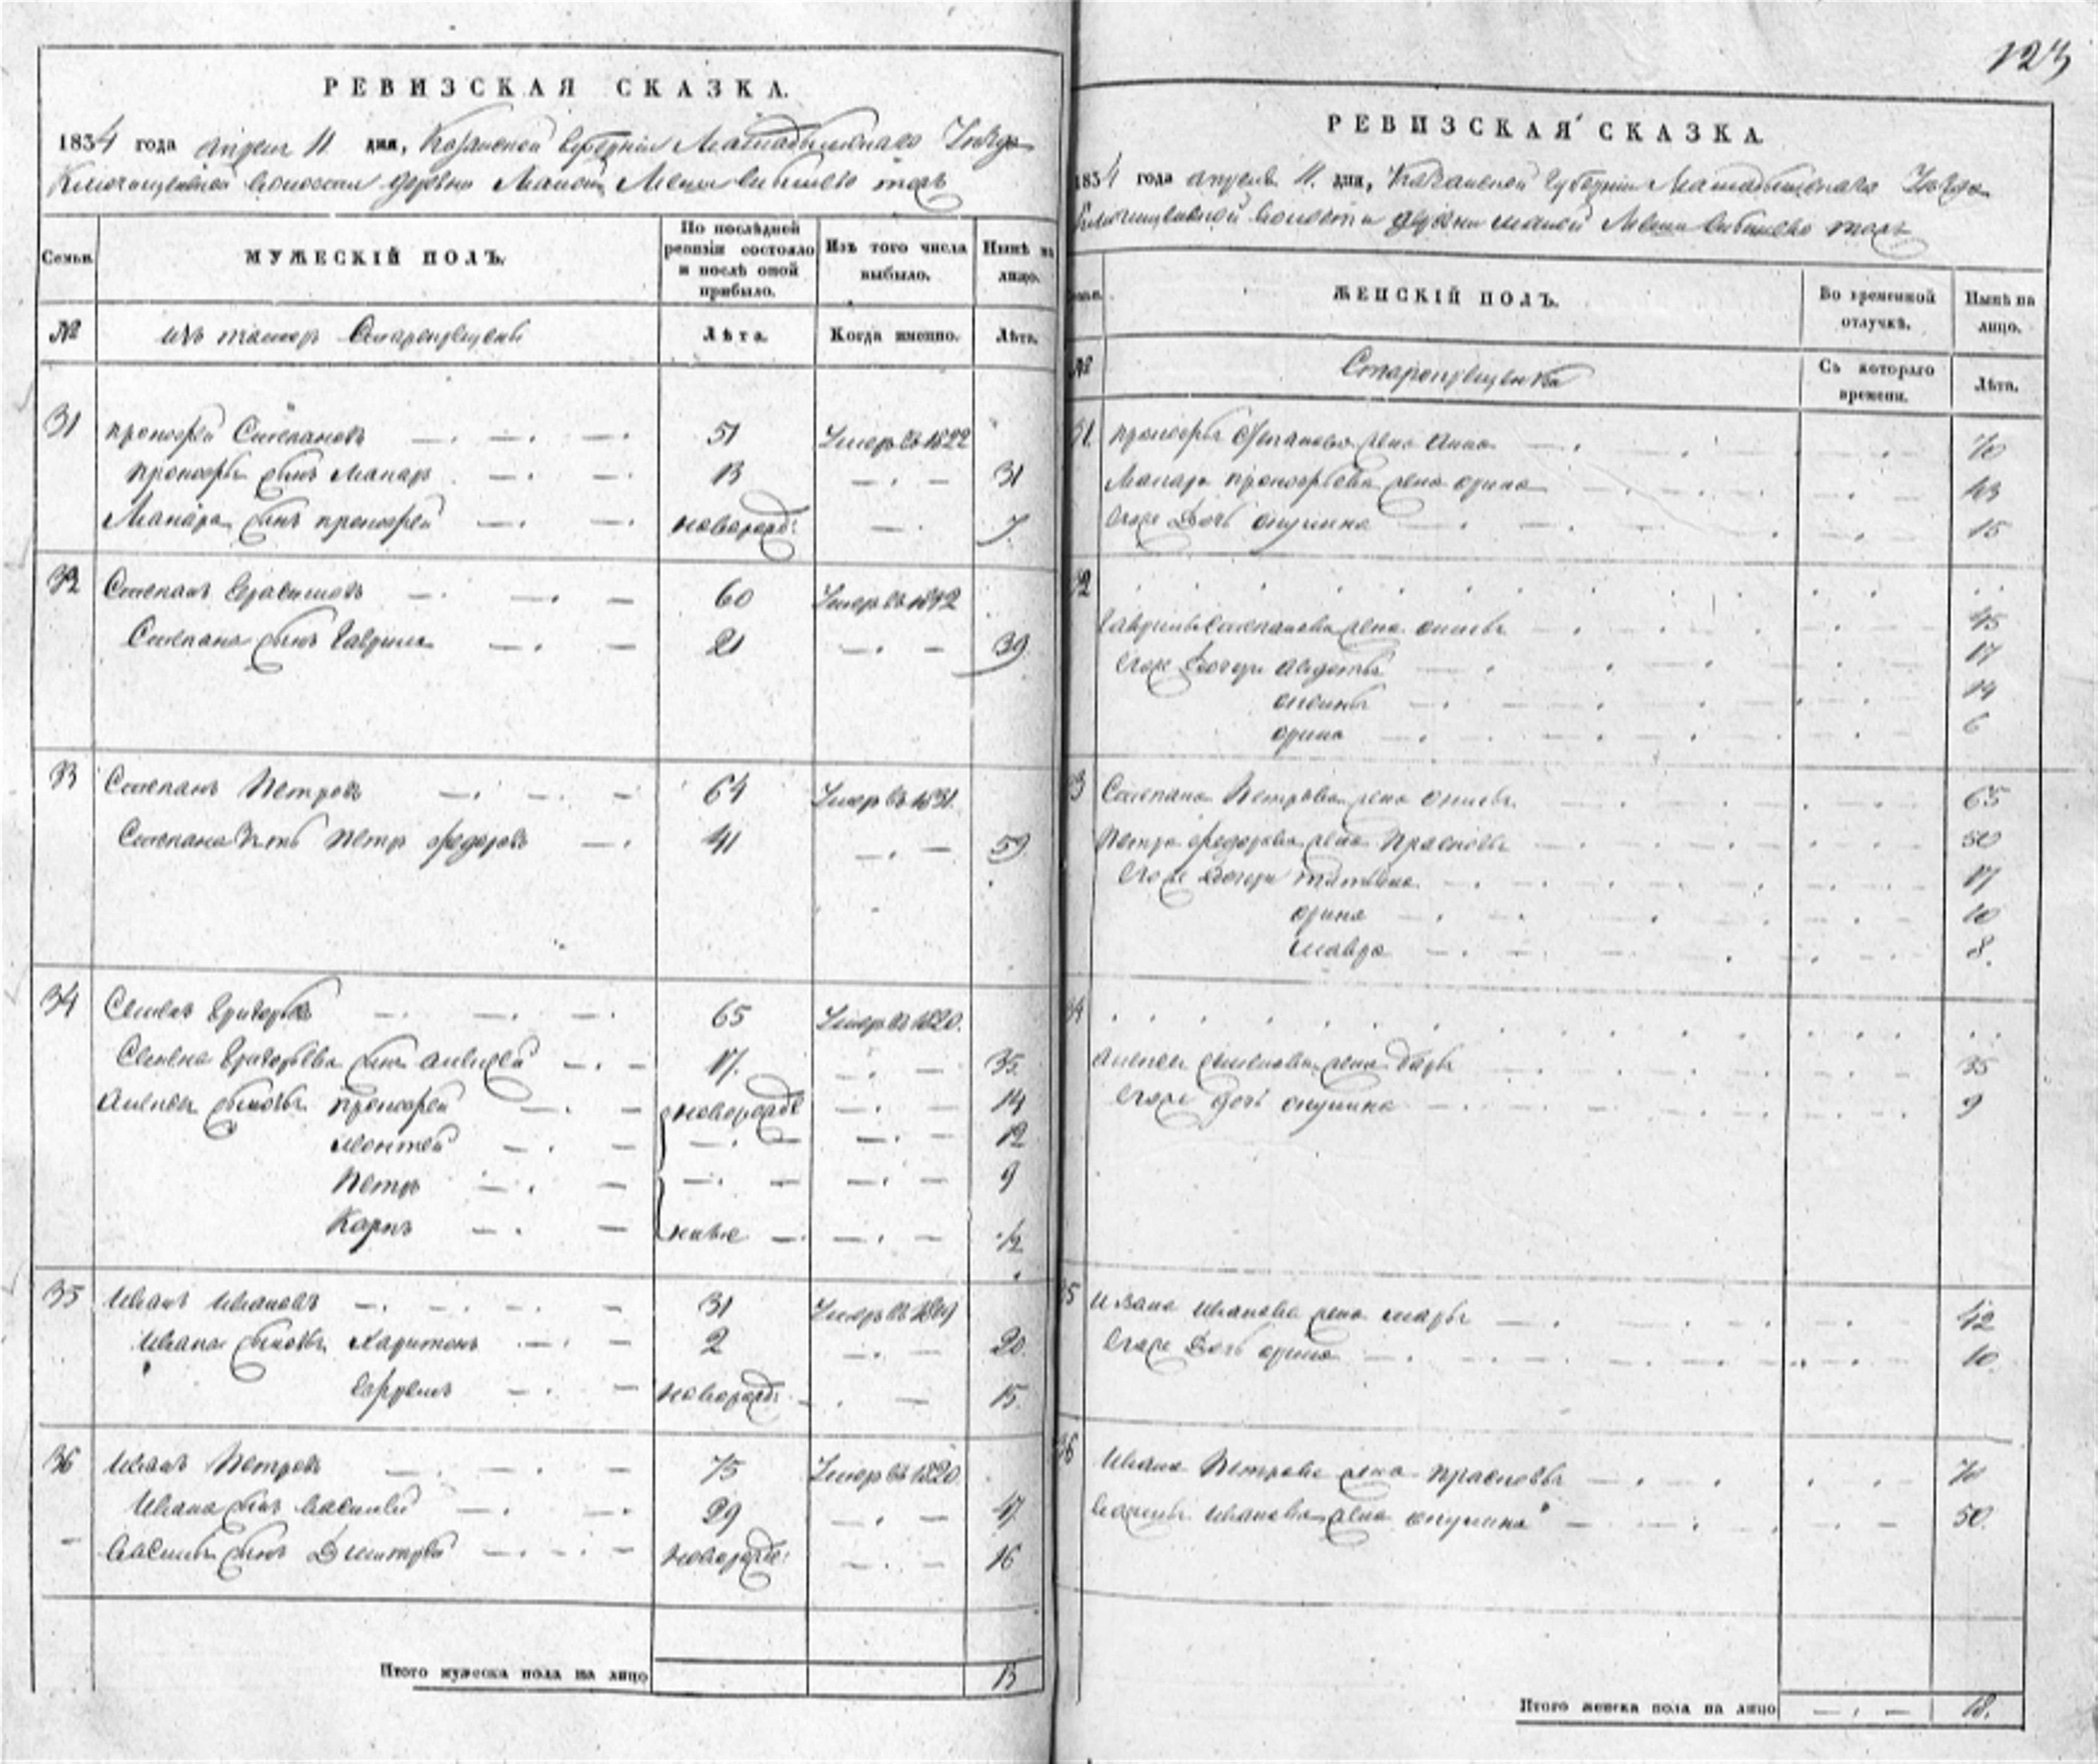 123
РЕВИЗСКАЯ СКАЗКА.
1834 года апреля 11 дня, Казанской Губернии Мамадышскаго Уѣзда
волости деревни Малой
Семьи.
МУЖЕСКІЙ ПОЛЪ.
По послѣдней ревизіи состояло и послѣ оной прибыло.
Изъ того числа выбыло.
Нынѣ на лицо.
№
изъ татаръ Старокрещены
Лѣта.
Когда именно.
Лѣта.
31 Прокофей Степановъ 51 Умеръ въ 1822
Прокофья сынъ Макаръ 13 31
Макара сынъ Прокофей новорожд: 7
32 Степанъ Герасимовъ 60 Умеръ въ
Степана сынъ Гаврила 21 39
33 Степанъ Петровъ 64 Умеръ въ 1831.
Степана зять Петръ Федоровъ 41 59
34 Семенъ Григорьевъ 65 Умеръ въ 1820.
Семена Григорьева сынъ Алексей 17. 35
Алексея сыновья Прокофей новорожд 14
12
Петръ 9
Карпъ ныне 1/2
35 Иванъ Ивановъ 31 Умеръ въ
Ивана сыновья Харитонъ 2 20.
Ефремъ новорожд: 15.
36 Иванъ Петровъ 75 Умеръ въ 1820
Ивана сынъ Василей 29 47
Василья сынъ Дмитрей новорожд: 16
Итого мужеска пола на лицо 13
РЕВИЗСКАЯ СКАЗКА
1834 года апреля 11. дня, Казанской Губернии Мамадышскаго Уѣзда
волости деревни малой
ЖЕНСКІЙ ПОЛЪ.
Во временной отлучкѣ.
Нынѣ на лицо.
№
Старокрещенка
Съ котораго времени.
Лѣта.
31. Прокофья Степанова жена Анна 70
Макара Прокофьева жена орина 43
Егоже Дочь окулина 15
32
Гаврилы Степанова жена 45
Егоже Дочери авдотья 17
14
орина 6
33 Степана Петрова жена 65
Петра Федорова жена Прасковья 50
Егоже Дочери татьяна 17
орина 10
мавра 8.
34
Алексея Семенова жена Дарья 35
Егоже дочь окулина 9
35 Ивана Иванова жена марья 42
Егоже Дочь орина 10
36 Ивана Петрова жена Прасковья 70
Василья Иванова жена окулина 50.
Итого женска пола на лицо 18.